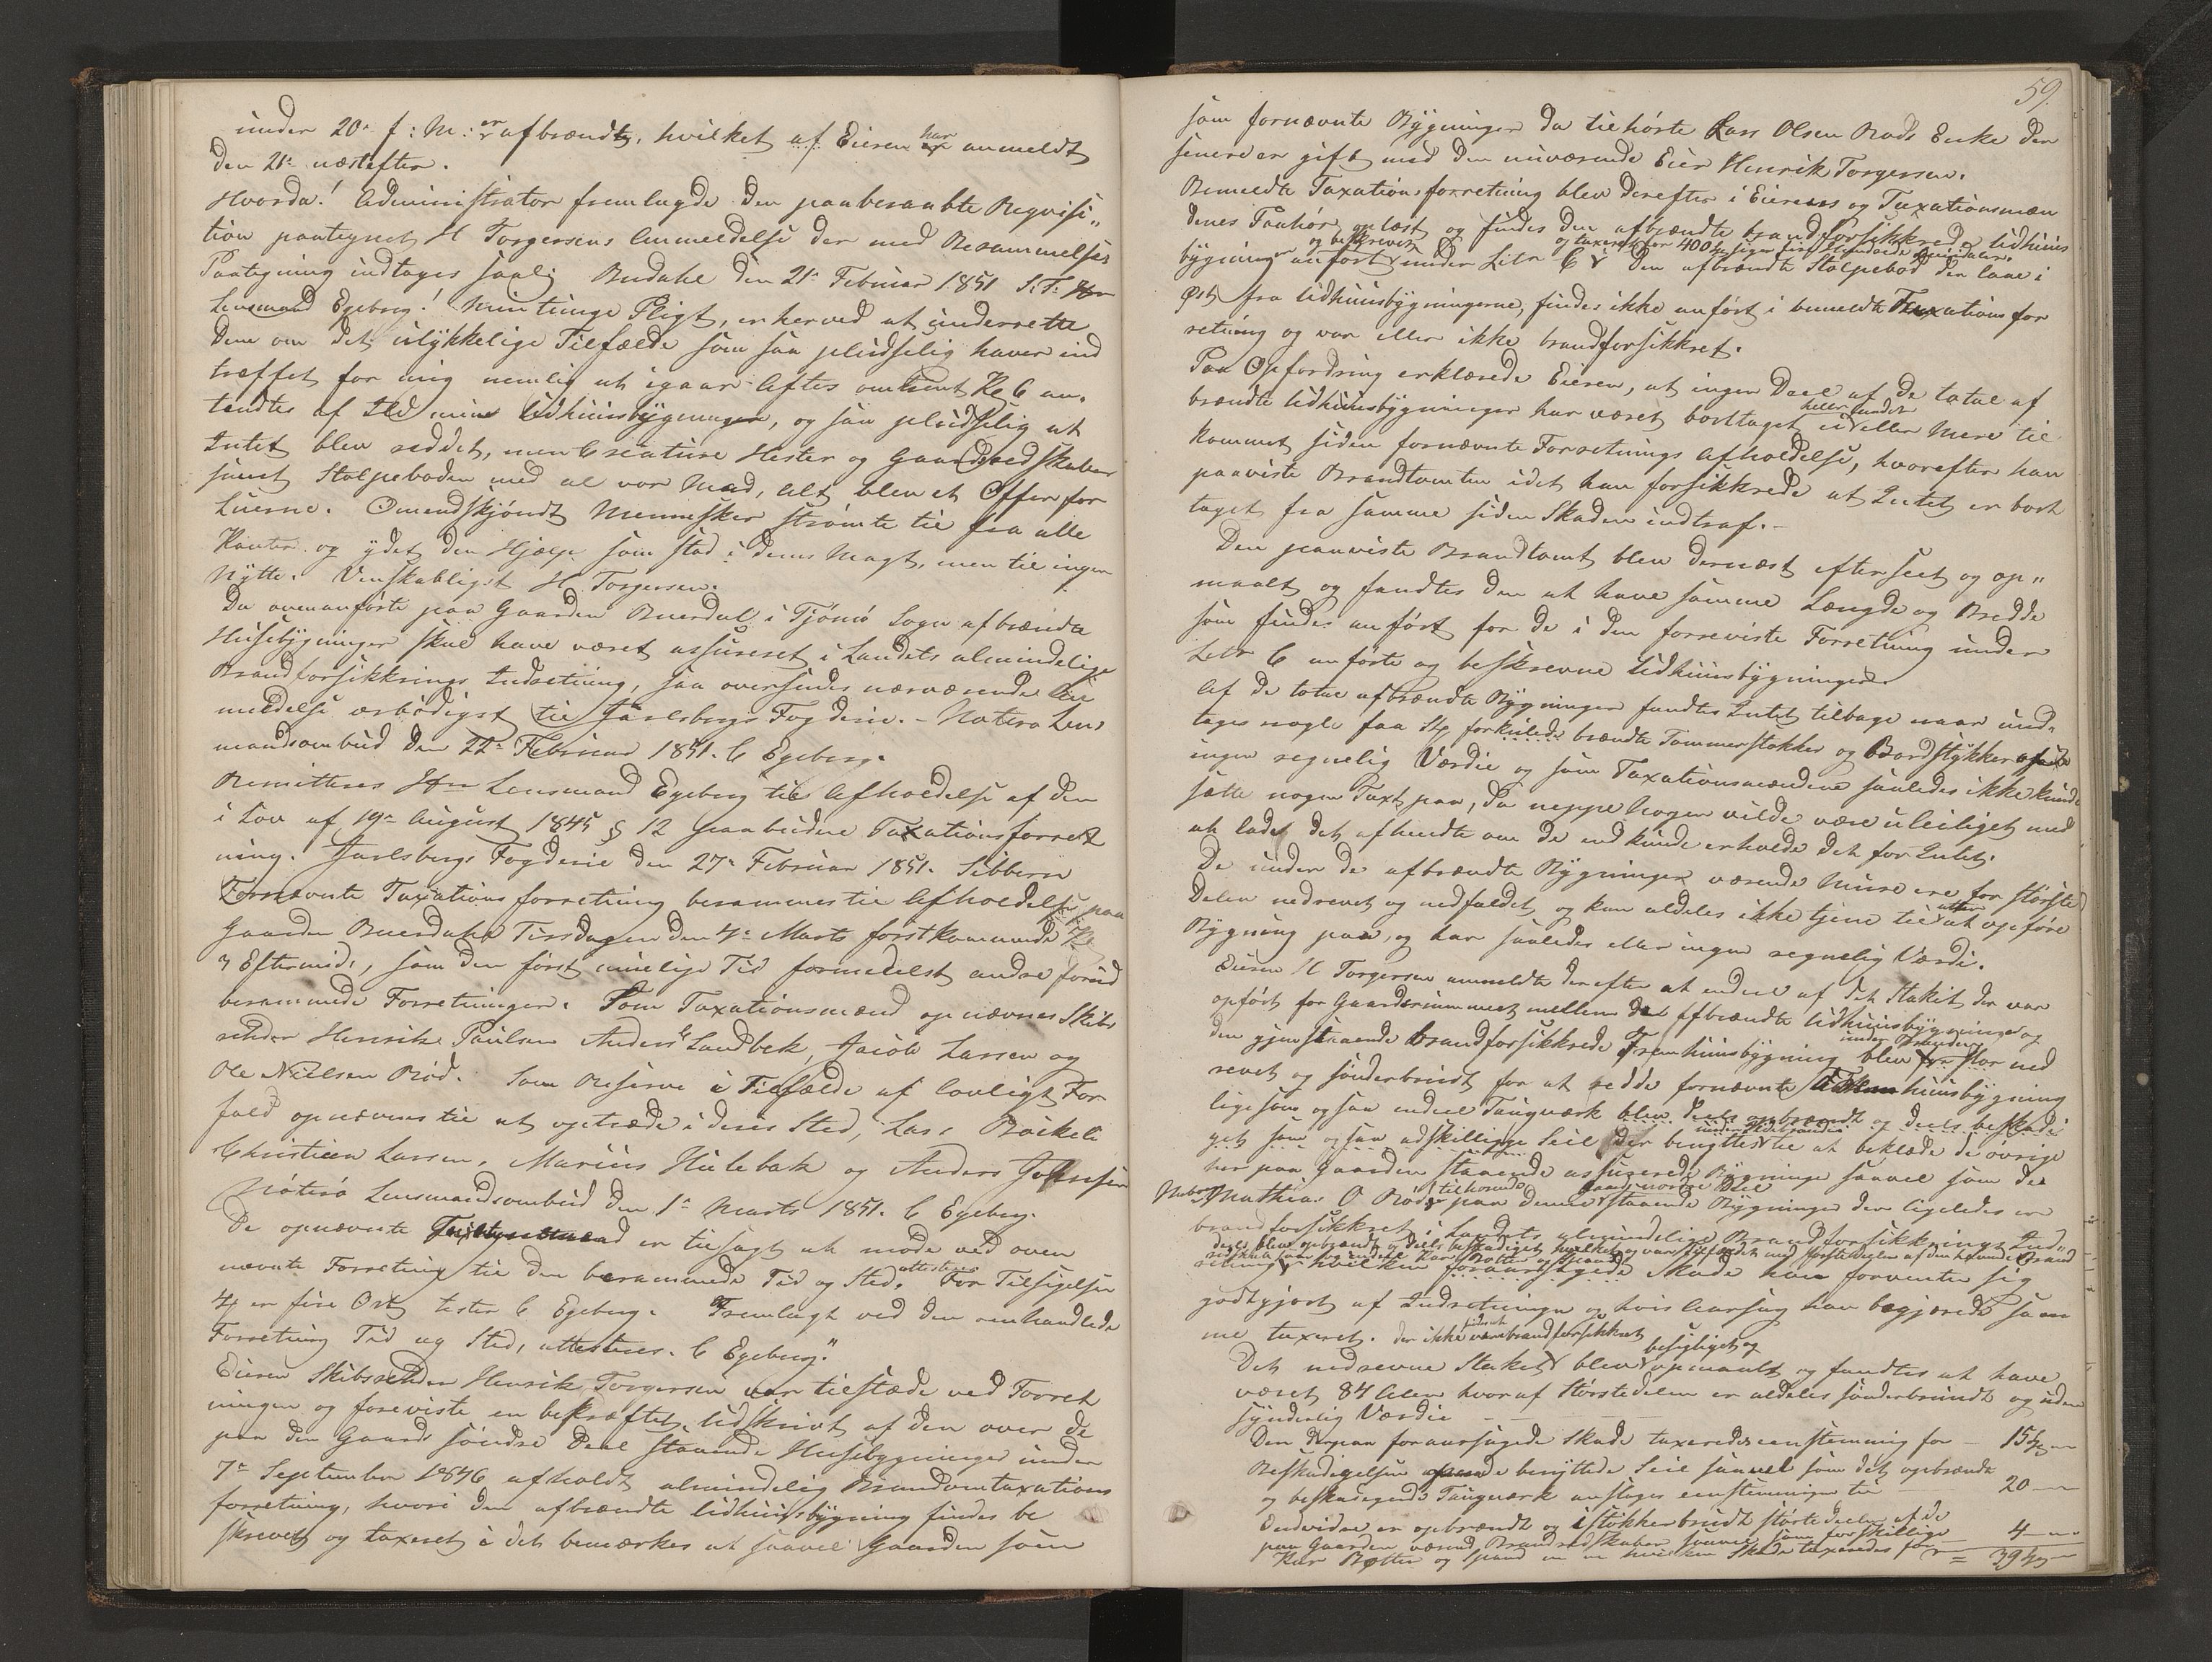 under 20de f: M: er afbrændt, hvilket af Eieren har anmeldt
den 21de næstefter.
Hvorda! Administrator fremlagde den paaberaabte Reqvisi„
tion paategnet H Torgersens Anmeldelse der med Berammelses
Paategning indtages saal: Buedahl den 21de Februar 1851 S. T. Hr
Lensmand Egeberg! Min tunge Pligt, er herved at underrette
Dem om det ulykkelige Tilfælde som saa pludselig haver ind
træffet for mig nemlig at igaar Aftes omtrent Kl 6 an„
tændtes af Ild mine Udhuusbygninger, og saa pludselig at
Intet blev reddet, men Creature Hester og Gaardsredskaber
samt Stolpeboden med al vor Mad, Alt blev et Offer for
Luerne. Omendskjøndt Mennesker strømte til fra alle
Kanter og ydet den Hjælp som stod i deres Magt, men til ingen
Nytte. Venskabligst H. Torgersen.
Da ovenanførte paa Gaarden Buerdal i Tjømø Sogn afbrændte
Huusebygninger skal have været assureret i Landets almindelige
Brandforsikkrings Indretning, saa oversendes nærværende An
meldelse ærbødigst til Jarlsbergs Fogderie. - Nøterø Lens
mandsombud den 22de Februar 1851. C Egeberg.
Remitteres Hrr Lensmand Egeberg til Afholdelse af den
i Lov af 19de August 1845 § 12 paabudne Taxationsforret
ning. Jarlsbergs Fogderie den 27de Februar 1851. Sibbern
Fornævnte Taxationsforretning berammes til Afholdelse paa
Gaarden Buerdahl Tirsdagen den 4de Marts førstkommende Kl
3 Eftermid:, som den først muelige Tid formedelst andre forud
berammede Forretninger. Som Taxationsmænd opnævnes Skibs
rehder Henrik Paulsen Anders Sandbek, Jacob Larsen og
Ole Nielsen Rød. Som Reserve i Tilfælde af lovligt For
fald opnævnes til at optræde i deres Sted, Lars Bøikeli
Christian Larsen, Marius Hulebak og Anders Johnsen
Nøterø Lensmandsombud den 1ste Marts 1851. C Egeberg.
De opnævnte er tilsagt at møde ved oven
nævnte Forretning til den berammede Tid og Sted. attesteres For Tilsigelsen
4 er fire Ort tester C Egeberg. Fremlagt ved den omhandlede
Forretning Tid og Sted, attesteres. C Egeberg."
Eieren Skibsrehder Henrik Torgersen var tilstæde ved Forret
ningen og foreviste en bekræftet Udskrivt af den over de
paa den Gaards søndre Deel staaende Huusebygninger under
7de September 1846 afholdt almindelig Brandomtaxations
forretning, hvori den afbrændte Udhuusbygning findes be
skrevet og taxeret i det bemærkes at saavel Gaarden som
59.
som fornævnte Bygninger da tilhørte Lars Olsen Røds Enke den
senere er gift med den nuværende Eier Henrik Torgersen.
Bemeldte Taxationsforretning blev derefter i Eierens og Taxationsmæn
denes Paahør oplæst og findes den afbrændte brandforsikkrede Udhuus
og beskrevet og taxeret for 400 siger fire Hundrede Speciedaler.
bygning anført under Litr C. Den afbrændte Stolpebod der laae i
Øst fra Udhuusbygningerne, findes ikke anført i bemeldte Taxationsfor
retning og var eller ikke brandforsikkret.
Paa Opfordring erklærede Eieren, at ingen Deel af de total af
brændte Udhuusbygninger har været borttaget ei heller andet eller Mere til
kommet siden fornævnte Forretnings Afholdelse, hvorefter han
paaviste Brandtomten idet han forsikkrede at Intet er bort
taget fra samme siden Skaden indtraf. -
Den paaviste Brandtomt blev dernæst efterseet og op„
maalt og fandtes den at have samme Længde og Bredde
som findes anført for de i den foreviste Forretning under
Litr C anførte og beskrevne Udhuusbygninger.
Af de total afbrændte Bygninger fandtes Intet tilbage naar und„
tages nogle faa Stk forkulede brændte Tømmerstokker og Bordstykker
ingen regnelig Værdie og som Taxationsmændene saaledes ikke kunde
sætte nogen Taxt paa, da neppe Nogen vilde være uleiliget med
at lade det afhendte om de end kunde erholde det for Intet.
De under de afbrændte Bygninger værende Mure ere for største
Delen nedrevet og nedfaldet, og kan aldeles ikke tjene til atter at opføre
Bygning paa, og har saaledes eller ingen regnelig Værdi.
Eieren H Torgersen anmeldte derefter at endeel af det Stakit der var
opført for Gaardsrummet mellem det afbrændte Udhuusbygninger og
den gjenstaaende brandforsikkrede Fremhuusbygning blev under Branden ned
revet og sønderbrudt for at redde fornævnte huusbygning
ligesom ogsaa endeel Taugværk blev deels opbrændt og deels beskadi
get som ogsaa adskillige Seil der benyttes under Ildebranden til at beklæde de øvrige
her paa Gaarden staaende assurerede Bygninger saavel som de
Nabo Mathias O Røds tilhørende paa denne Gaards nordre Deel staaende Bygninger der ligeledes er
brandforsikkret i Landets almindelige Brandforsikkrings Ind„
deels blev opbrændt og deels beskadiget hvilket og var Tilfældet med største delen af den havende Brand
redskab som og endeel Kar Bøtter og Spand
retning hvilken foraarsagede Skade han forventer sig
godtgjort af Indretningen og hvis Aarsag han begjærede sam
me taxeret. der ikke sees at være brandforsikkret
Det nedrevne Staket blev besigtiget og opmaalt og fandtes at have
været 84 Alen hvoraf Størstedelen er aldeles sønderbrudt og uden
synderlig Værdie
Den derpaa foraarsagede Skade taxeredes eenstemmig for - 15
Beskadigelsen benyttede Seil saavel som det opbrændte
og beskadigende Taugværk ansloges eenstemmigen til 20
Endvidre er opbrændt og istykkerbrudt største deelen af de
paa Gaarden værend Brandredskaber saavel som forskillige
Kar Bøtter og Spand hvilken Skade taxeredes for 4
= 39